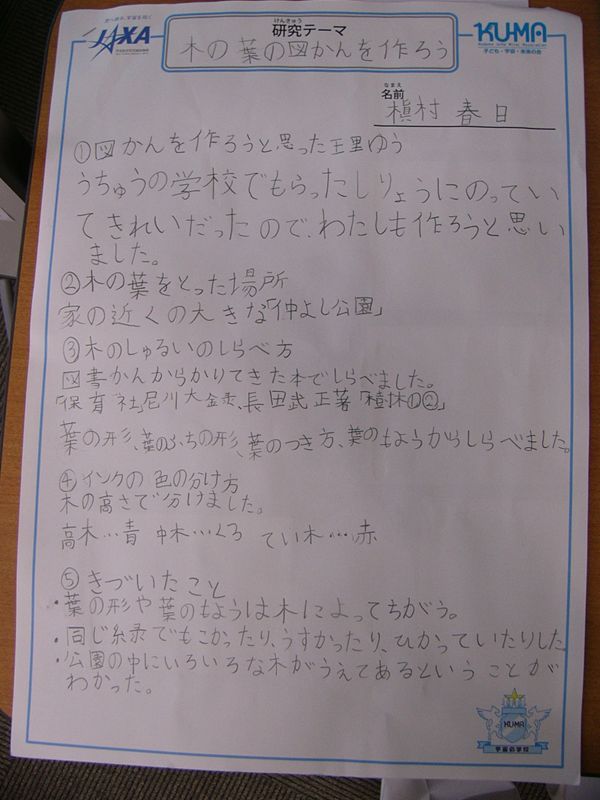 けんきゅう
研究テーマ
木の葉の図かんを作ろう
JAXA
KU-MA
子ども・宇宙・未来の会
なまえ
名前
槇村 春日
①図かんを作ろうと思った王里ゆう
うちゅうの学校でもらったしりょうにのってい
てきれいだったので、わたしも作ろうと思い
ました。
②木の葉をとった場所
家の近くの大きな「仲よし公園」
③木のしゅるいのしらべ方
図書かんからかりてきた本でしらべました。
「保育社尼川大録、長田武正著「樹木①②」
葉の形、葉のふちの形、葉のつき方、葉のもようからしらべました。
④インクの色の分け方
木の高さで分けました。
高木…青 中木…くろ てい木…赤
⑤きづいたこと
・葉の形や葉のもようは木によってちがう。
・同じ緑でもこかったり、うすかったり、ひかっていたりした。
・公園の中にいろいろな木がうえてあるということが
わかった。
KUMA
宇宙の学校